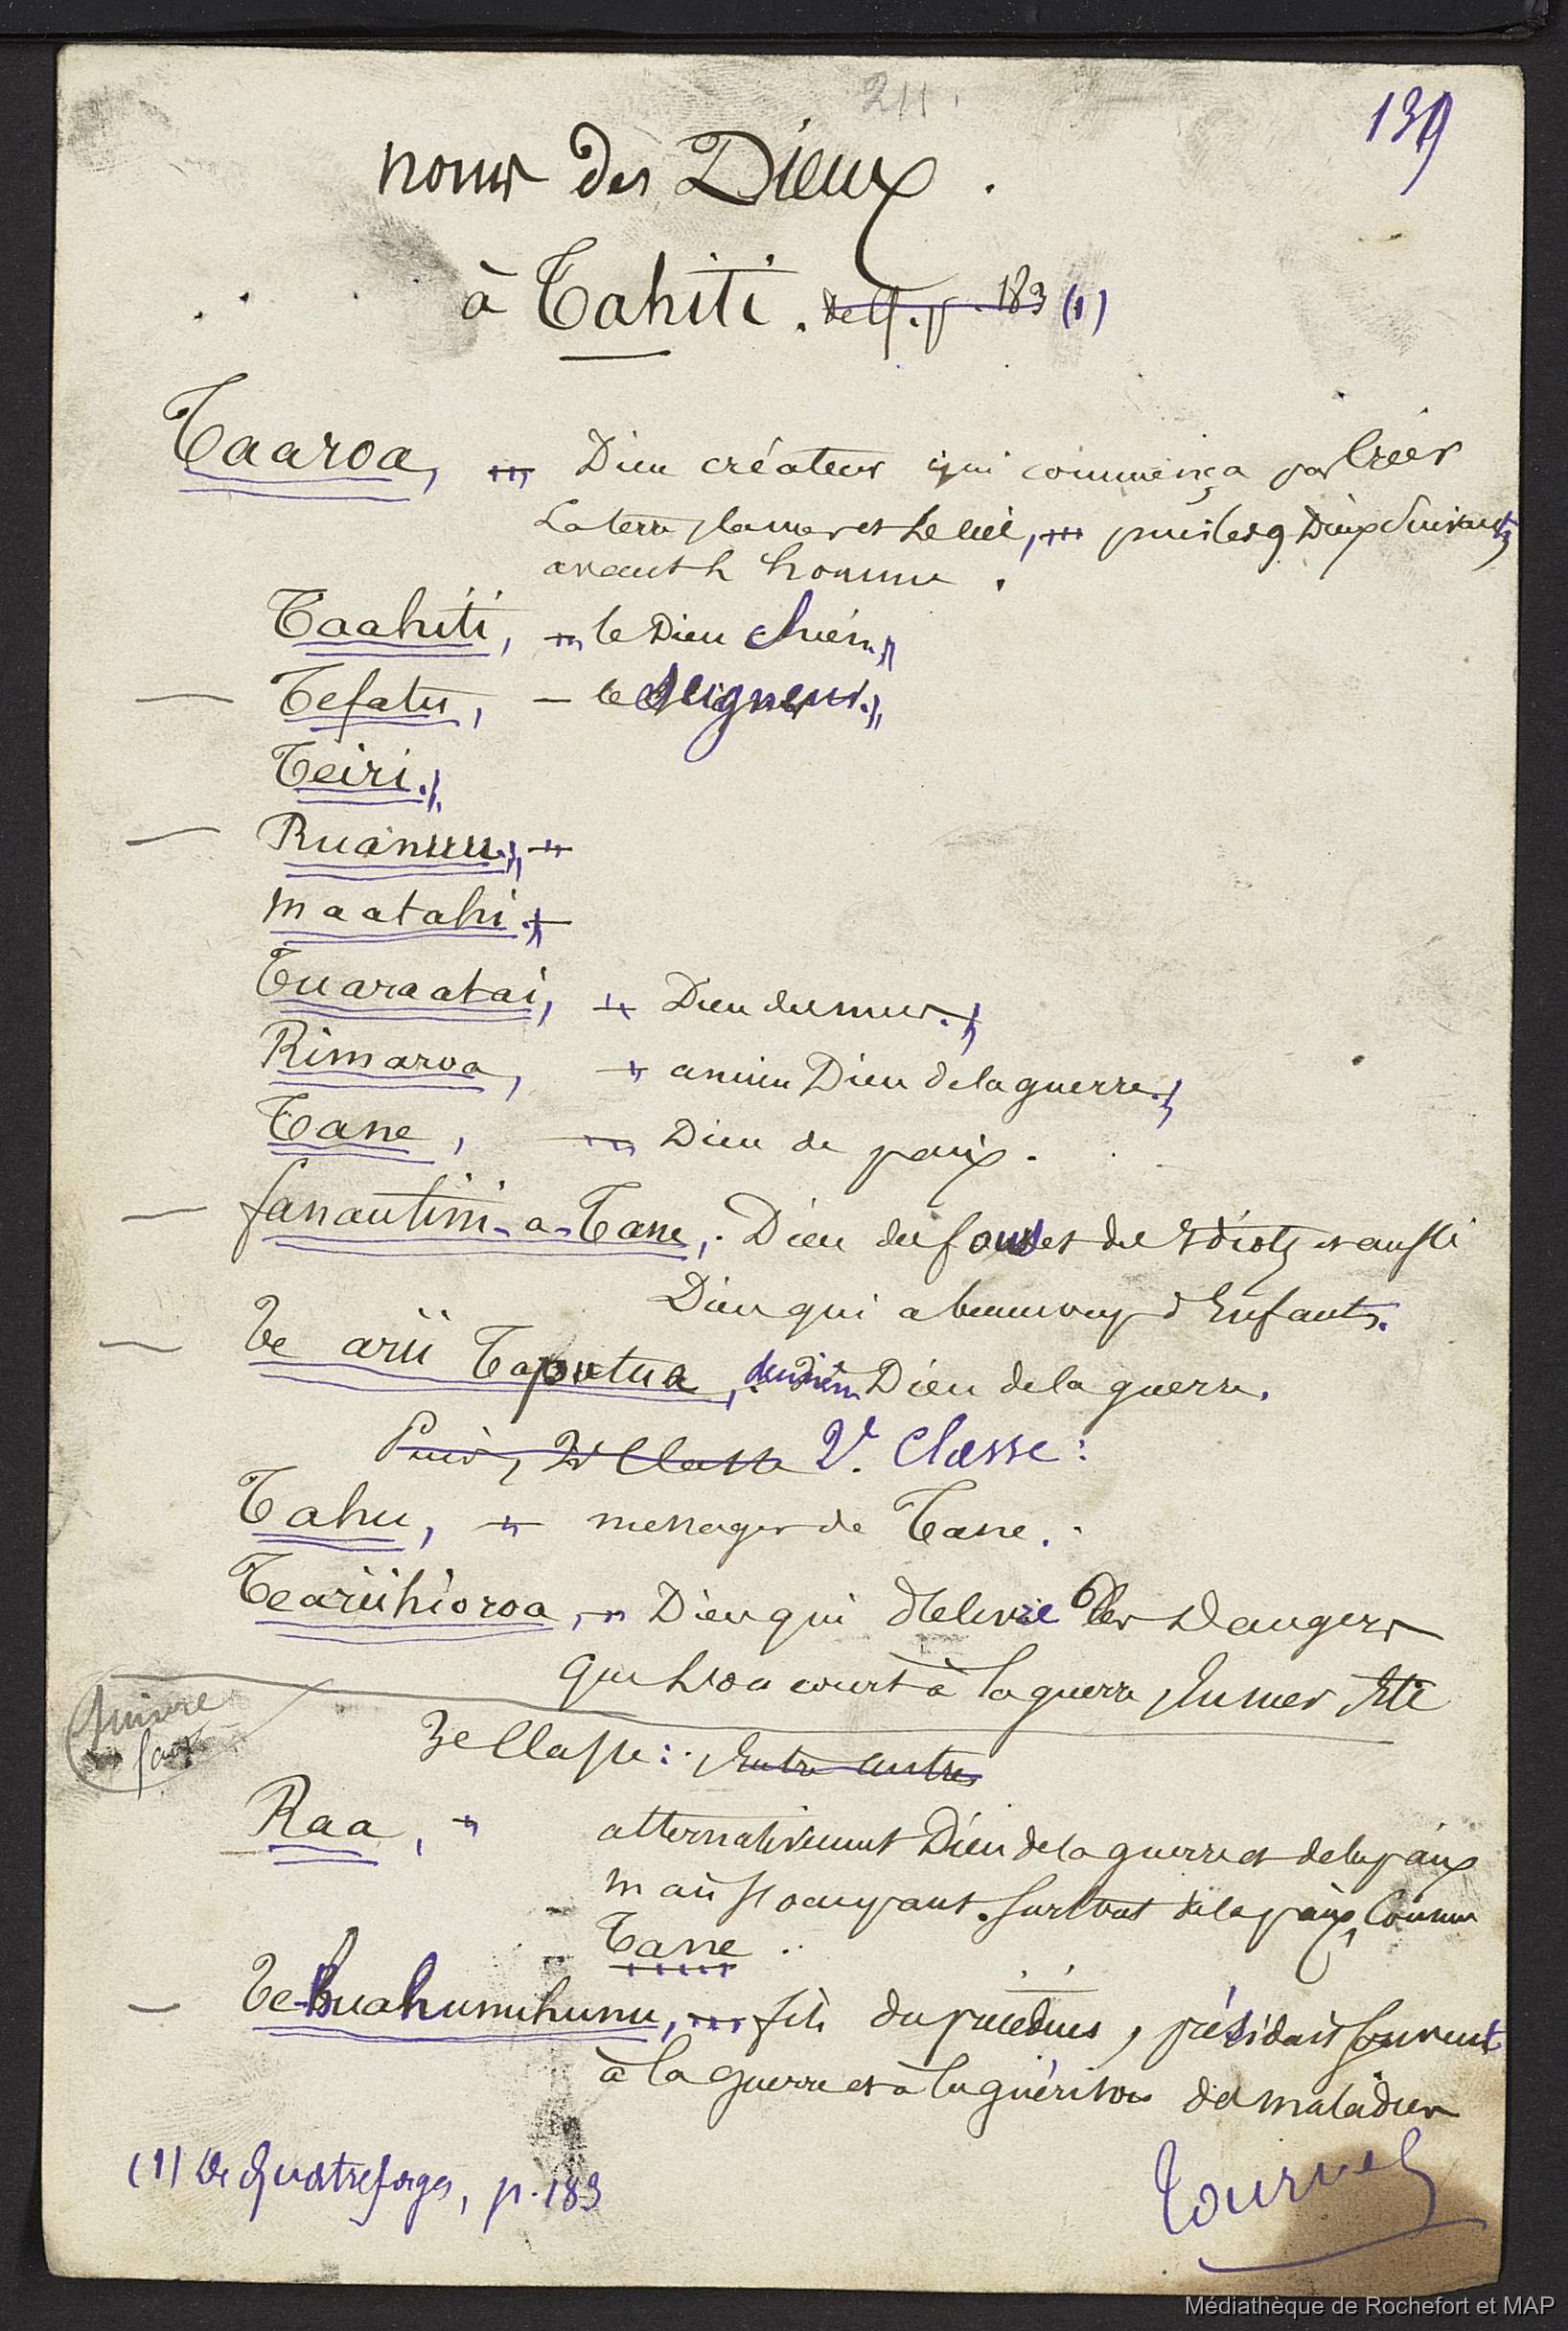 211.
139
noms des Dieux.
à Tahiti. de Q. p. 183 (1)
Taaroa, Dieu créateur qui commença par Créer
La terre, la mer et Le Ciel, puis les 9 Dieux Suivants
avant l'homme.
Taahiti, le Dieu chien.
Tefatu, — le Seigneur.
Teiri.
Ruanuu.
maatahi.
Tuaraatai, Dieu des mers.
Rimaroa, ancien Dieu de la guerre.
Tane, Dieu de paix.
fanautini-a-Tane, Dieu des fous et des Idiots et aussi
Dieu qui a beaucoup d'Enfants.
Te arii Taputua, Dieu de la guerre.
Puis, 2e Classe 2e. Classe:
Tahu, messager de Tane.
Teariihioroa, Dieu qui délivre des Dangers
que l'on court à la guerre, En mer Etc
Suivre
3e Classe: Entre autres
Raa, alternativement Dieu de la guerre et de la paix
mais s'occupant surtout de la paix, Comme
Tane.
Te huahunuhunu, fils du précédent, présidait souvent
à la guerre et à la guérison des maladies
(1) De Quatrefages, p. 183
Tournez
Médiathèque de Rochefort et MAP